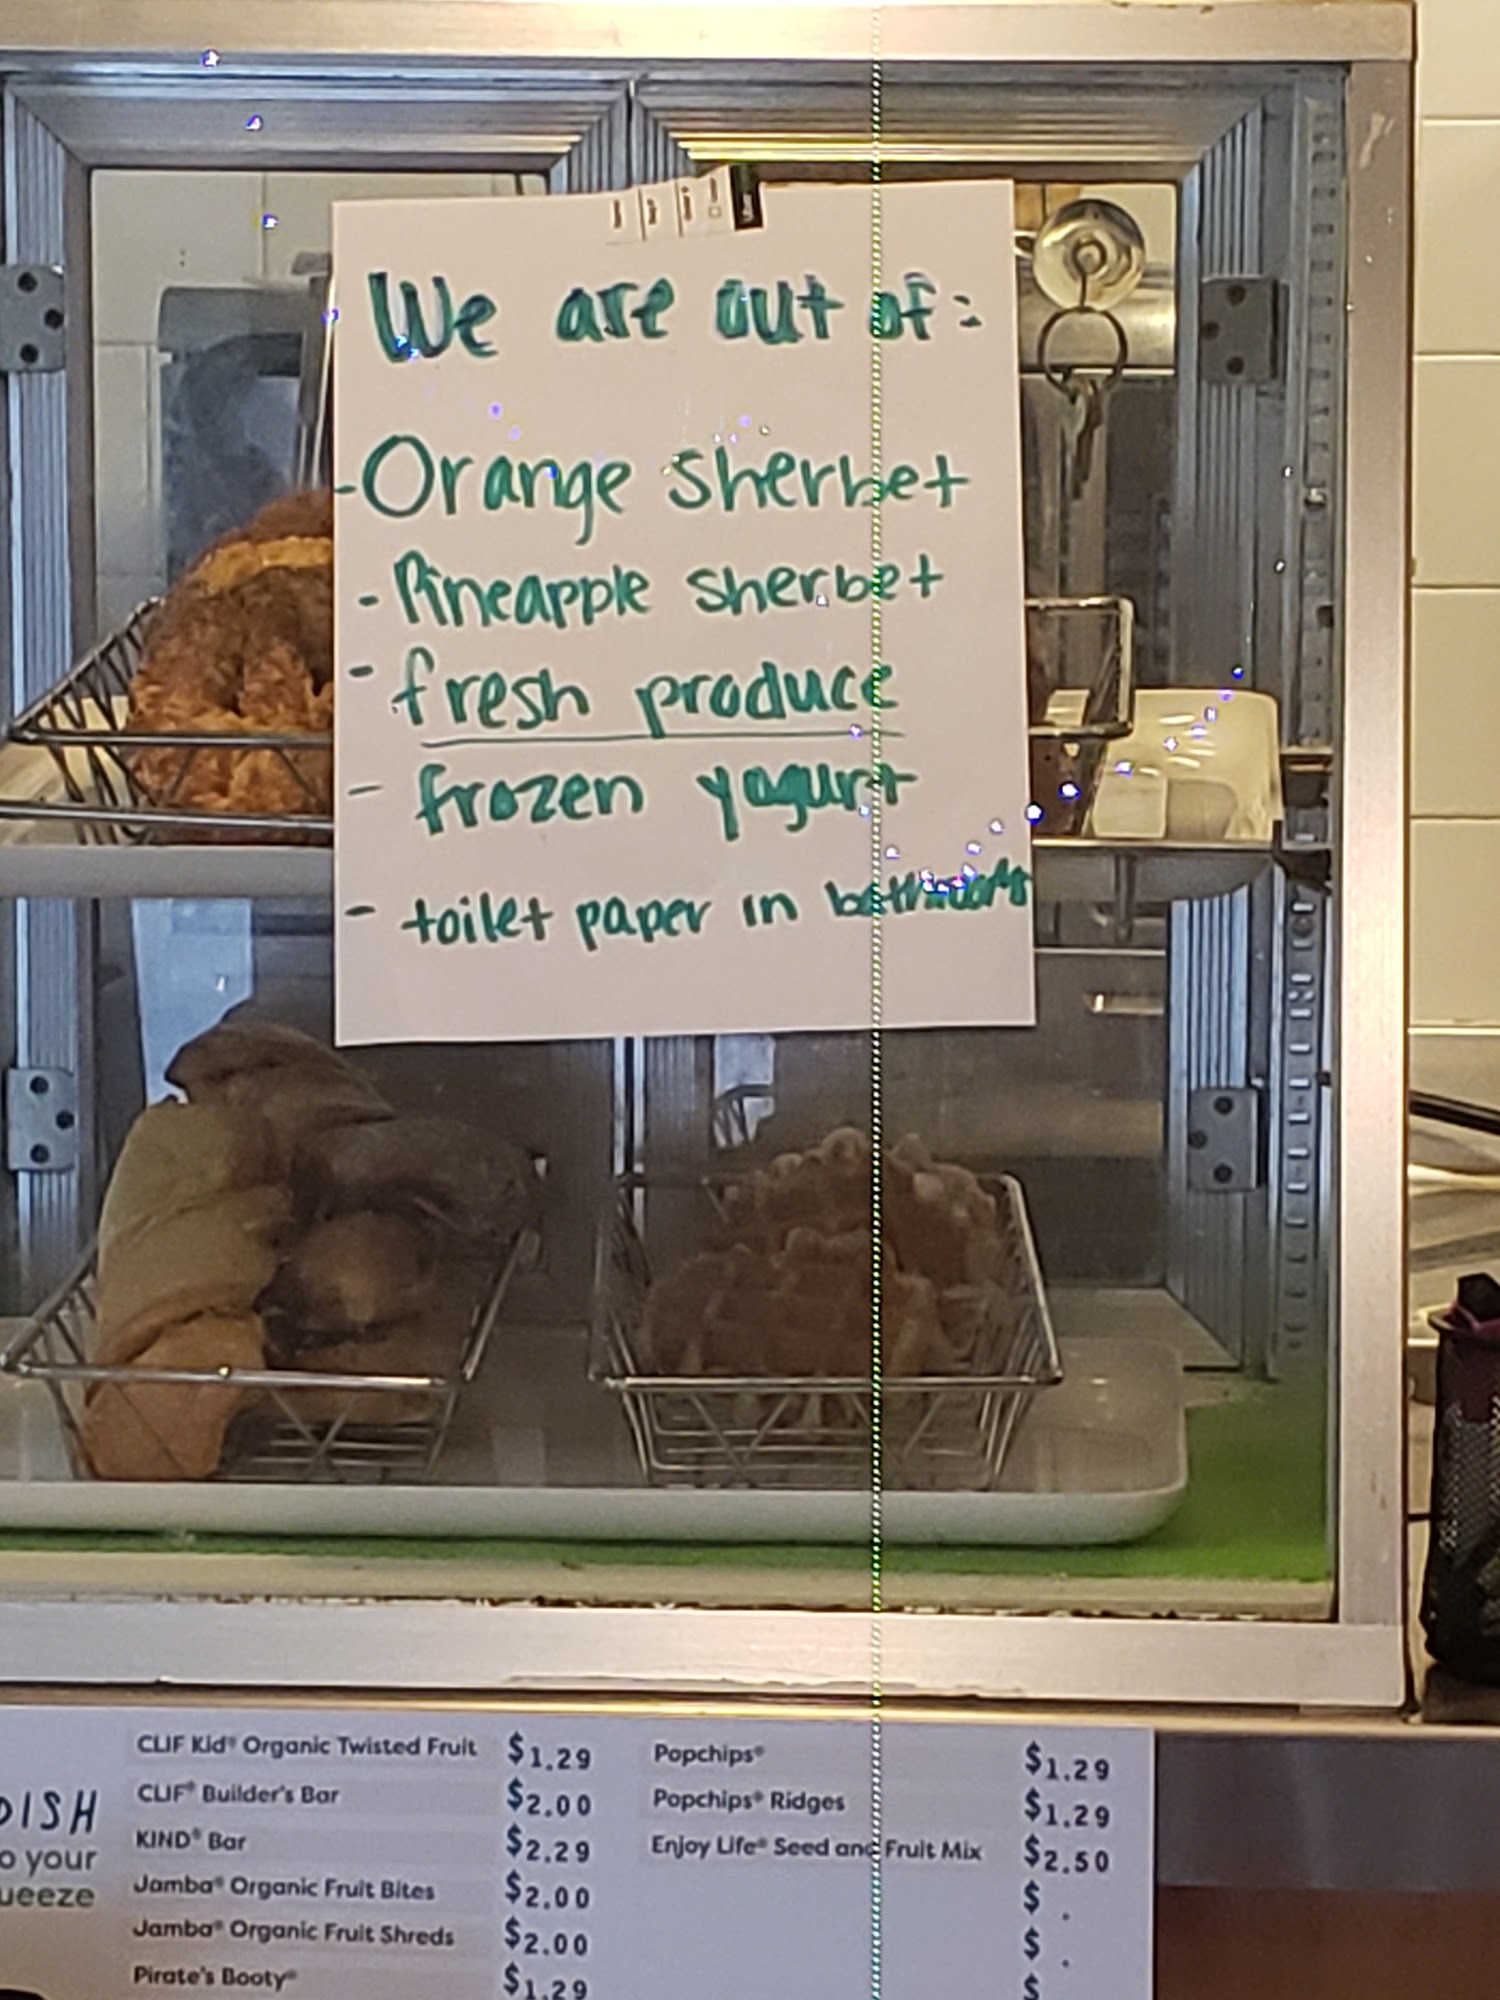 We are out of:
-Orange sherbet
- Pineapple sherbet
- fresh produce
- frozen yogurt
- toilet paper in
DISH
o your
ueeze
CLIF Kid® Organic Twisted Fruit $1.29
CLIF® Builder's Bar $2.00
KIND® Bar $2.29
Jamba® Organic Fruit Bites $2.00
Jamba® Organic Fruit Shreds $2.00
Pirate's Booty® $1.29
Popchips® $1.29
Popchips® Ridges $1.29
Enjoy Life® Seed and Fruit Mix $2.50
$ .
$ .
$